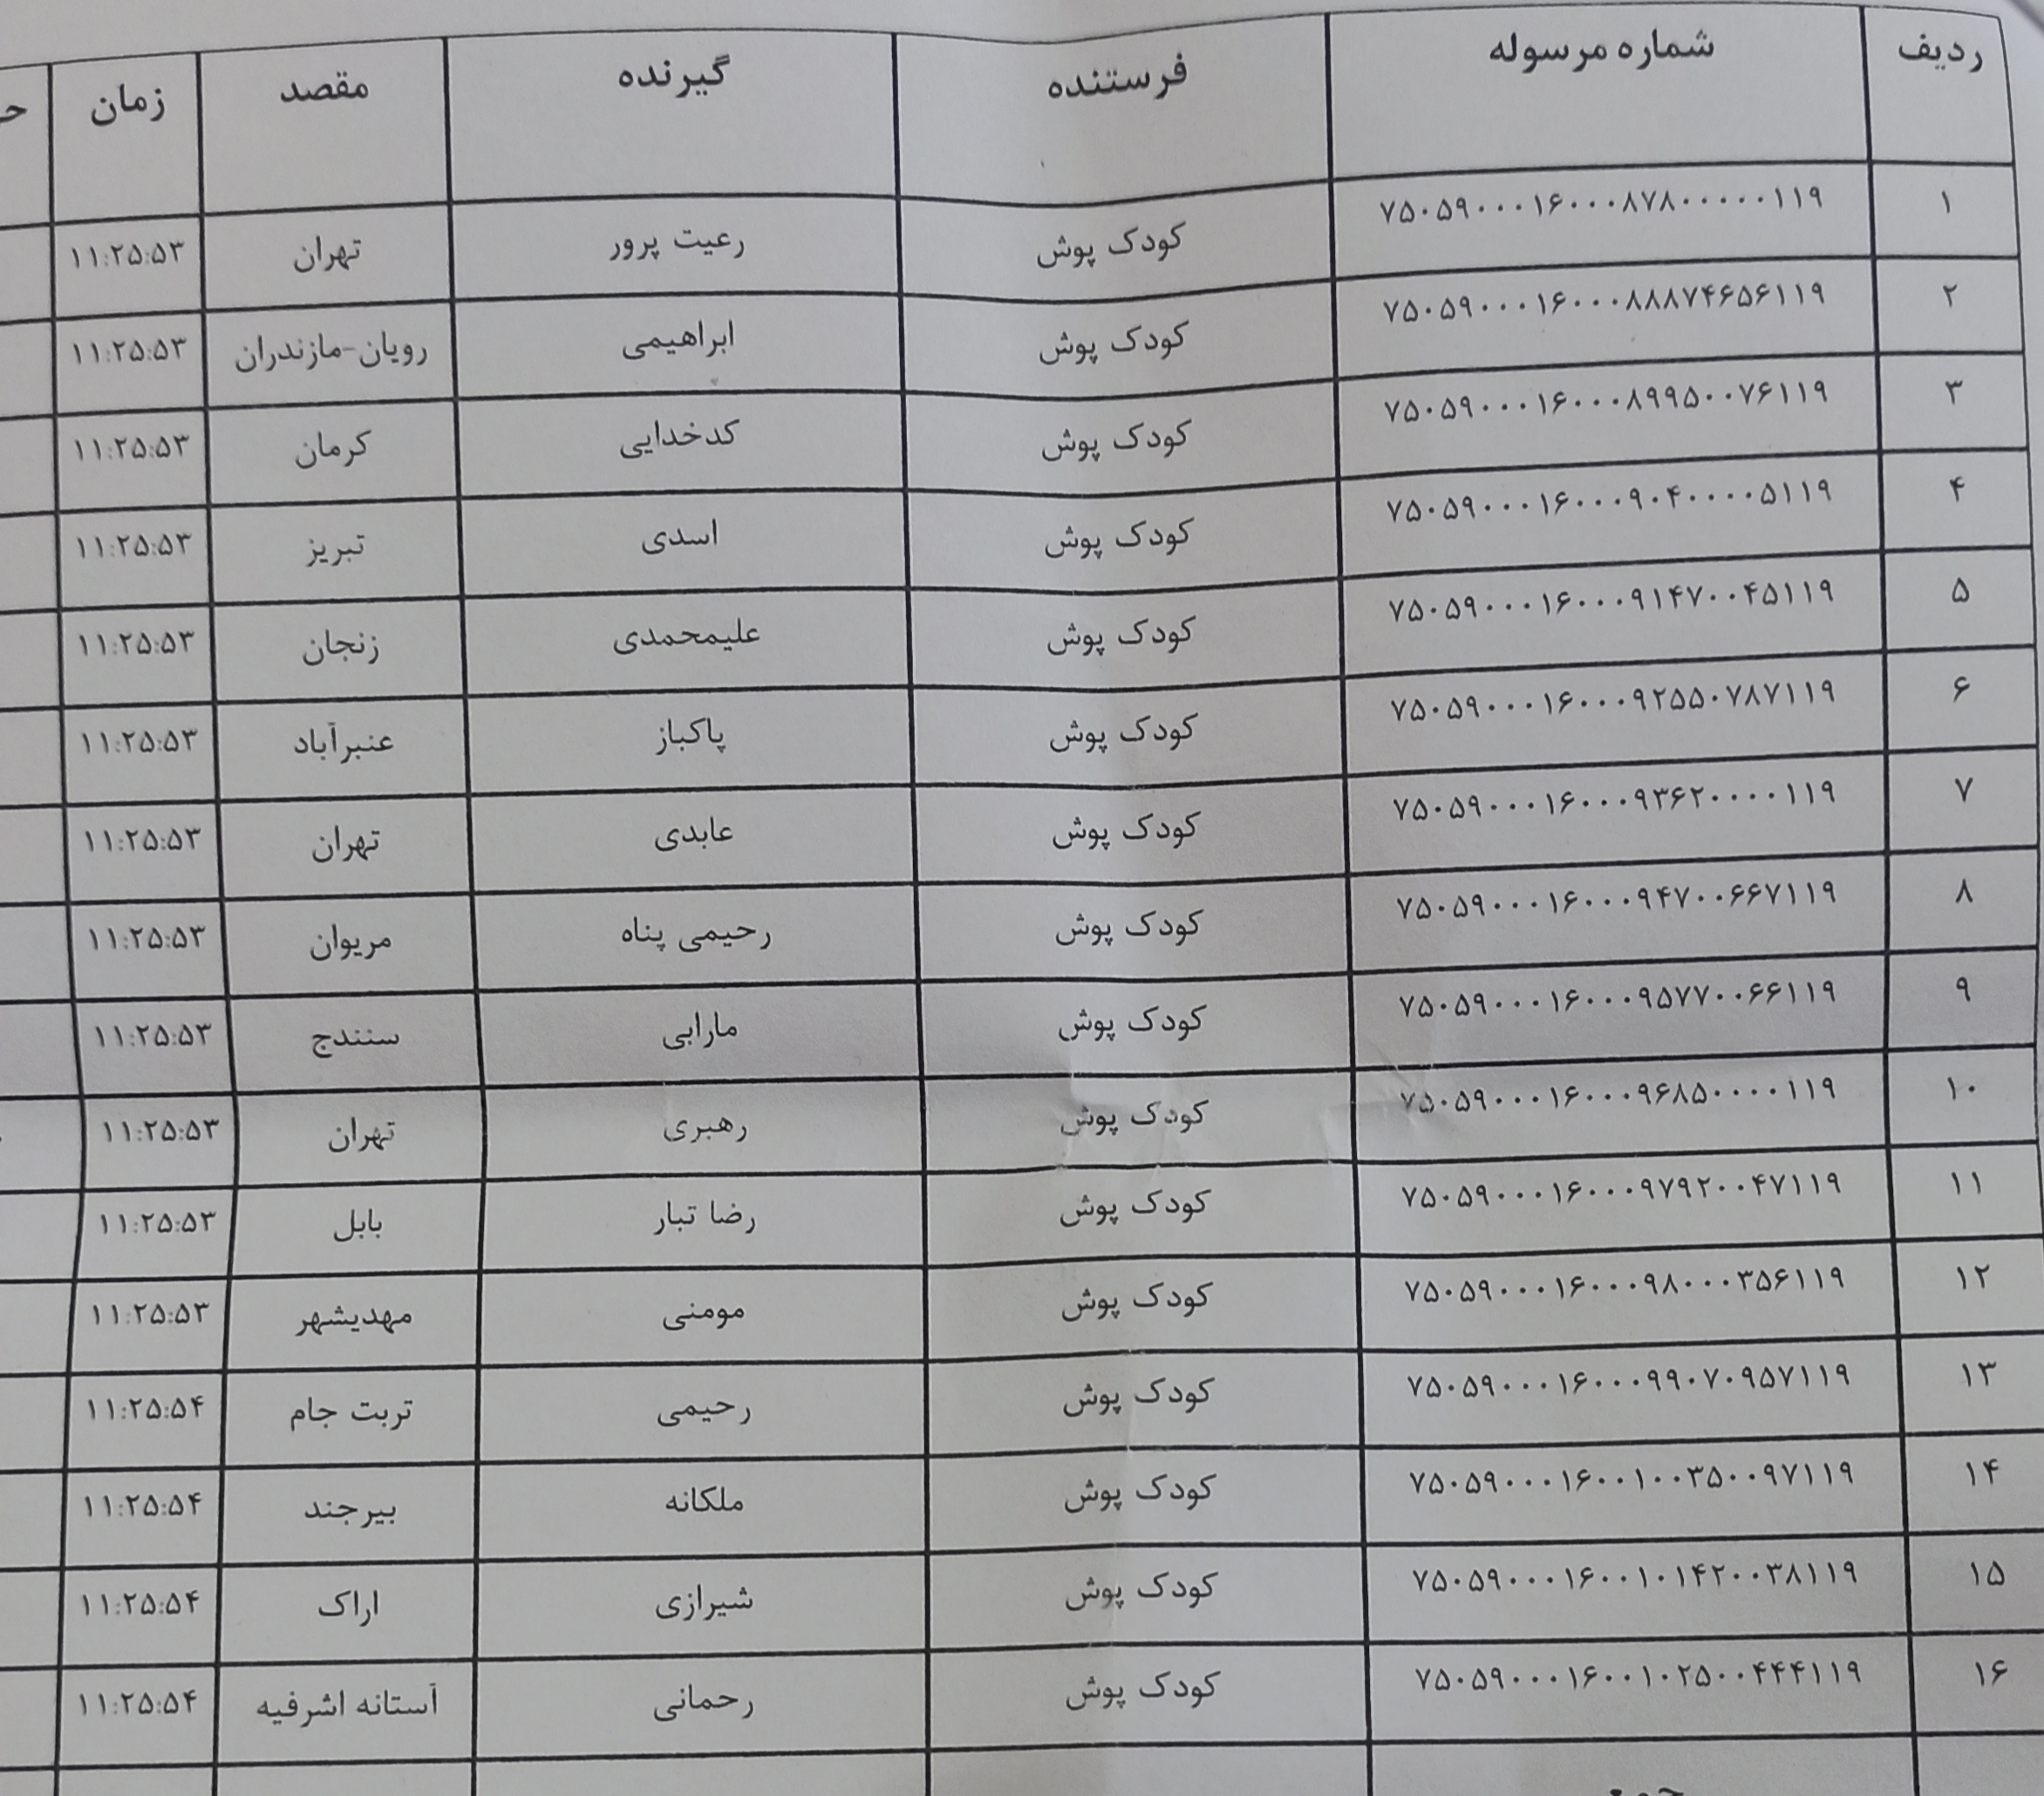 ردیف شماره مرسوله فرستنده گیرنده مقصد زمان
۱ ۷۵۰۵۹۰۰۰۱۶۰۰۰۸۷۸۰۰۰۰۰۱۱۹ کودک پوش رعیت پرور تهران ۱۱:۲۵:۵۳
۲ ۷۵۰۵۹۰۰۰۱۶۰۰۰۸۸۸۷۴۶۵۶۱۱۹ کودک پوش ابراهیمی رویان-مازندران ۱۱:۲۵:۵۳
۳ ۷۵۰۵۹۰۰۰۱۶۰۰۰۸۹۹۵۰۰۷۶۱۱۹ کودک پوش کدخدایی کرمان ۱۱:۲۵:۵۳
۴ ۷۵۰۵۹۰۰۰۱۶۰۰۰۹۰۴۰۰۰۰۵۱۱۹ کودک پوش اسدی تبریز ۱۱:۲۵:۵۳
۵ ۷۵۰۵۹۰۰۰۱۶۰۰۰۹۱۴۷۰۰۴۵۱۱۹ کودک پوش علیمحمدی زنجان ۱۱:۲۵:۵۳
۶ ۷۵۰۵۹۰۰۰۱۶۰۰۰۹۲۵۵۰۷۸۷۱۱۹ کودک پوش پاکباز عنبرآباد ۱۱:۲۵:۵۳
۷ ۷۵۰۵۹۰۰۰۱۶۰۰۰۹۳۶۲۰۰۰۰۱۱۹ کودک پوش عابدی تهران ۱۱:۲۵:۵۳
۸ ۷۵۰۵۹۰۰۰۱۶۰۰۰۹۴۷۰۰۶۶۷۱۱۹ کودک پوش رحیمی پناه مریوان ۱۱:۲۵:۵۳
۹ ۷۵۰۵۹۰۰۰۱۶۰۰۰۹۵۷۷۰۰۶۶۱۱۹ کودک پوش مارابی سنندج ۱۱:۲۵:۵۳
۱۰ ۷۵۰۵۹۰۰۰۱۶۰۰۰۹۶۸۵۰۰۰۰۱۱۹ کودک پوش رهبری تهران ۱۱:۲۵:۵۳
۱۱ ۷۵۰۵۹۰۰۰۱۶۰۰۰۹۷۹۲۰۰۴۷۱۱۹ کودک پوش رضا تبار بابل ۱۱:۲۵:۵۳
۱۲ ۷۵۰۵۹۰۰۰۱۶۰۰۰۹۸۰۰۰۳۵۶۱۱۹ کودک پوش مومنی مهدیشهر ۱۱:۲۵:۵۳
۱۳ ۷۵۰۵۹۰۰۰۱۶۰۰۰۹۹۰۷۰۹۵۷۱۱۹ کودک پوش رحیمی تربت جام ۱۱:۲۵:۵۴
۱۴ ۷۵۰۵۹۰۰۰۱۶۰۰۱۰۰۳۵۰۰۹۷۱۱۹ کودک پوش ملکانه بیرجند ۱۱:۲۵:۵۴
۱۵ ۷۵۰۵۹۰۰۰۱۶۰۰۱۰۱۴۲۰۰۳۸۱۱۹ کودک پوش شیرازی اراک ۱۱:۲۵:۵۴
۱۶ ۷۵۰۵۹۰۰۰۱۶۰۰۱۰۲۵۰۰۴۴۴۱۱۹ کودک پوش رحمانی آستانه اشرفیه ۱۱:۲۵:۵۴